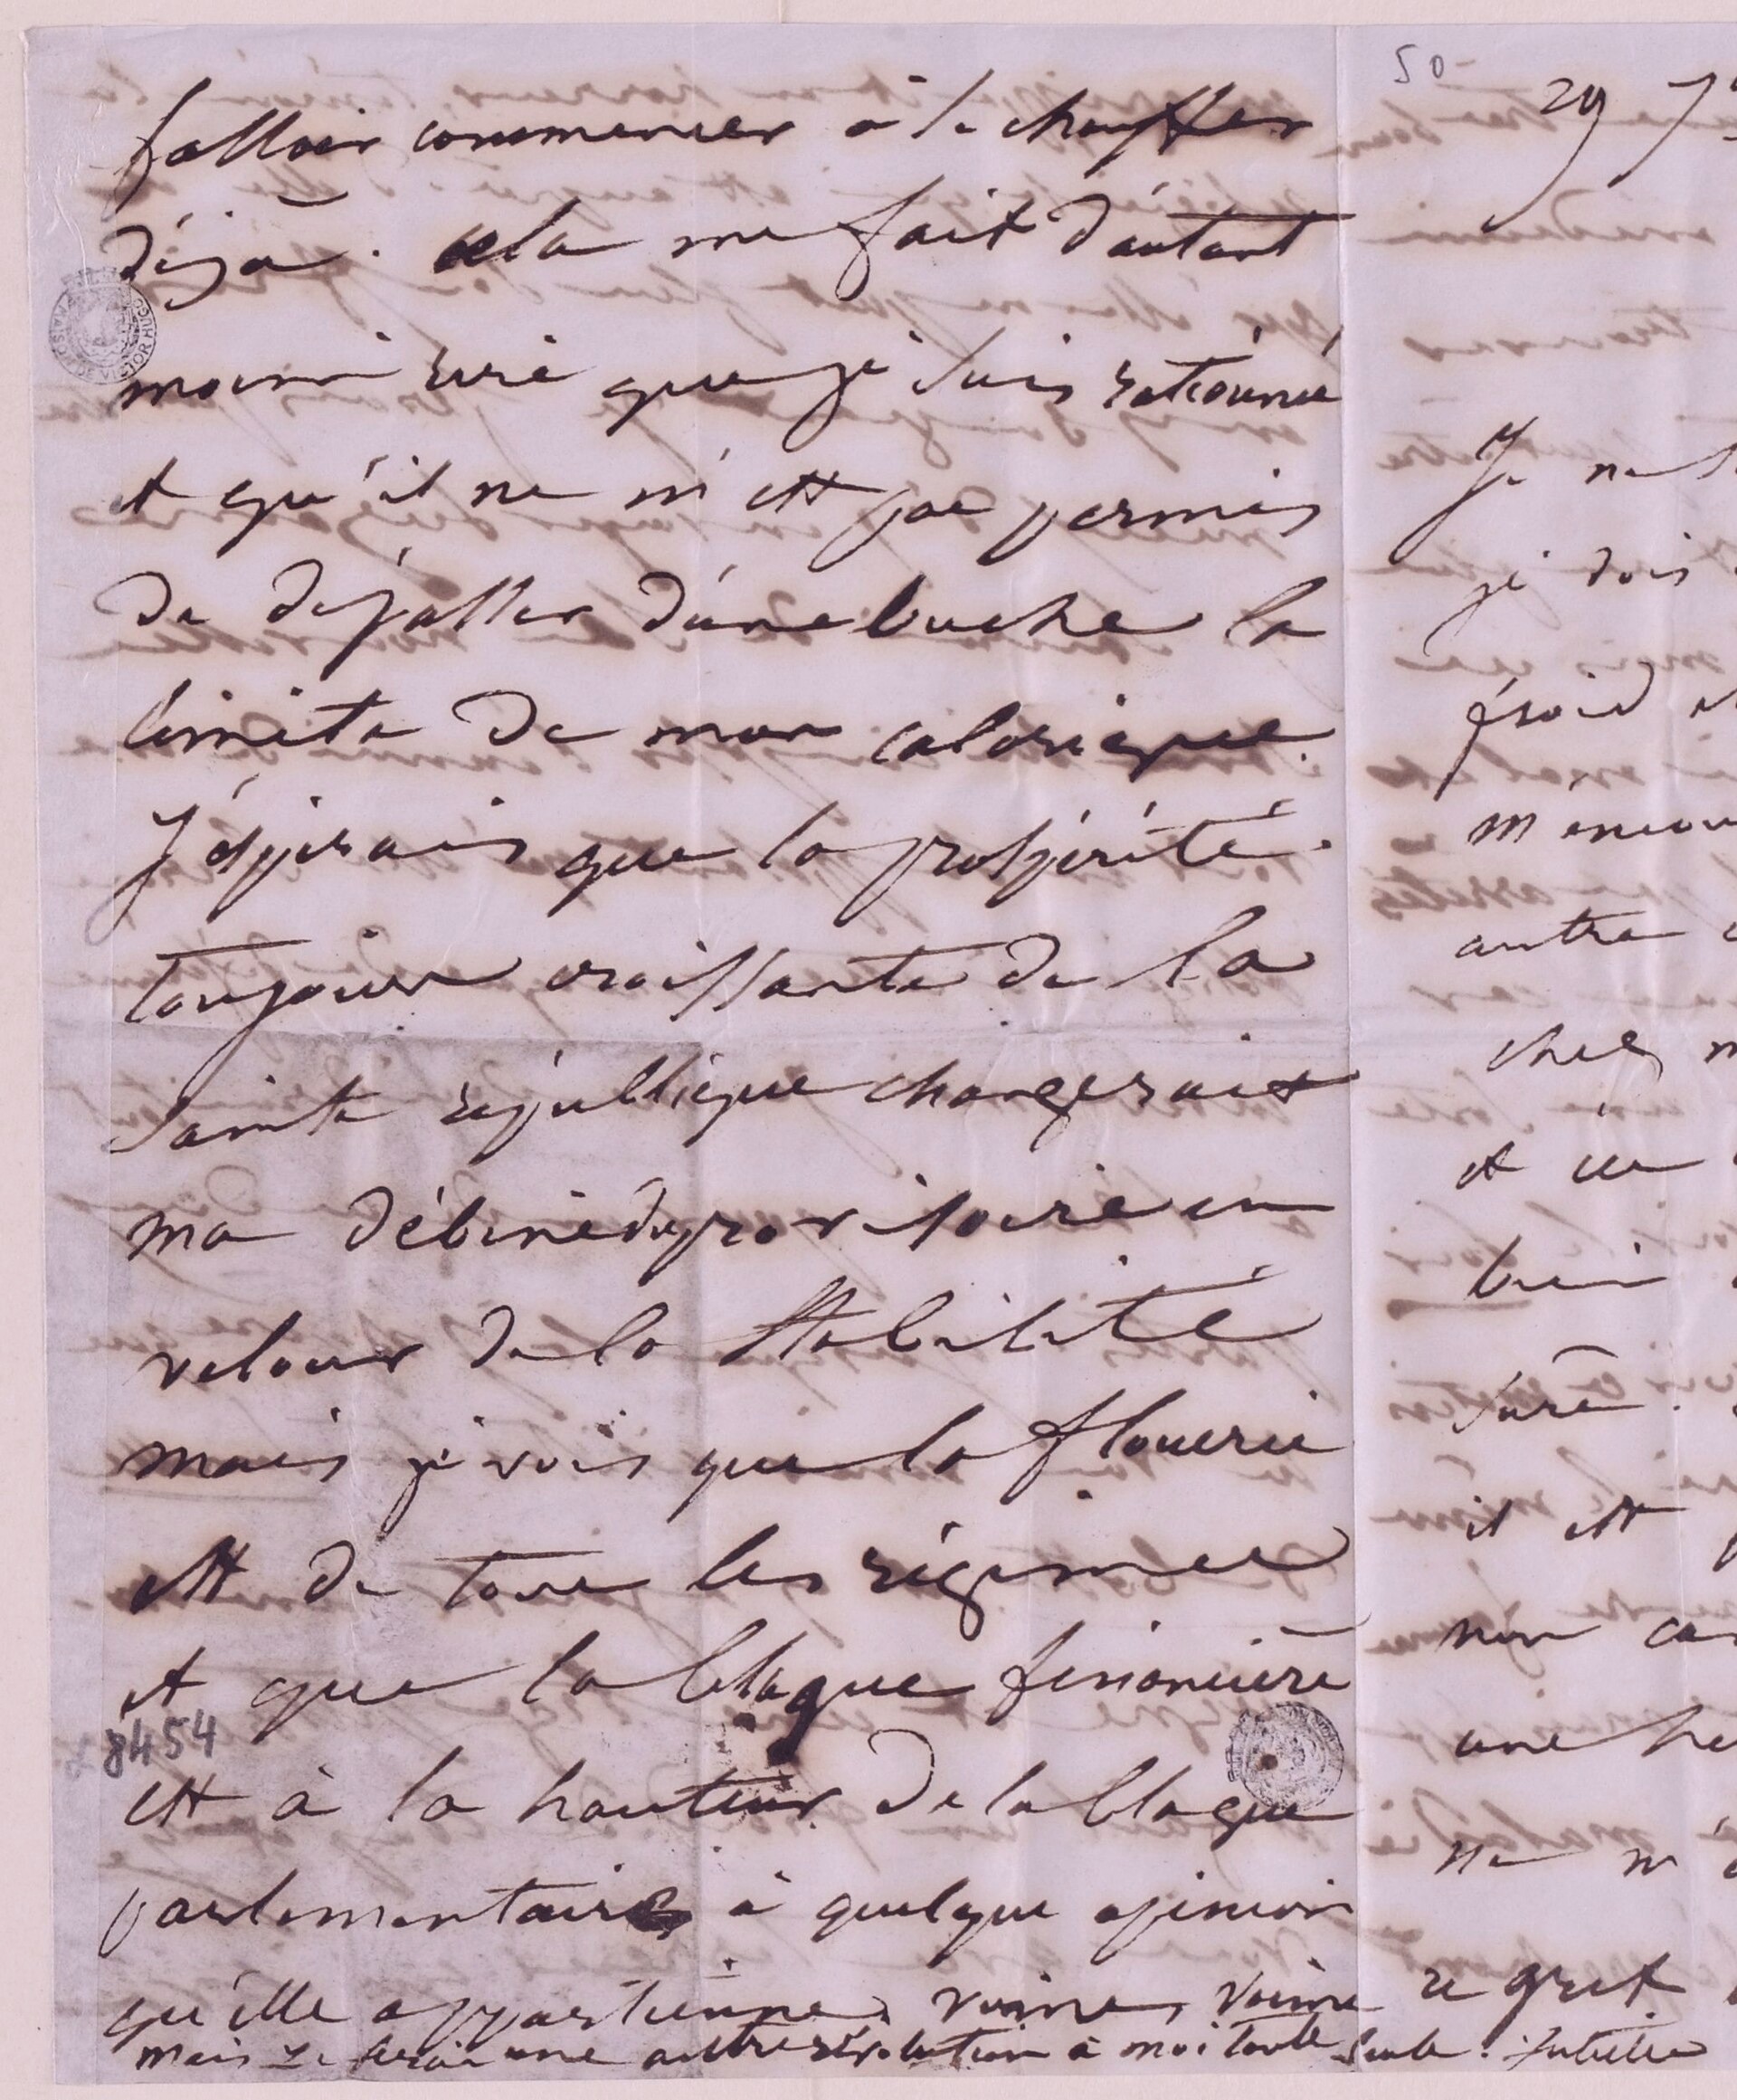 falloir commencer à le chauffer
déjà. cela me fait d'autant
moins rire que je suis rationnée
et qu'il ne m'est pas permis
de dépasser d'une buche la
limite de mon calorique.
J'espérais que la prospérité
toujours croissante de la
sainte république changerait
ma débine du provisoire en
velours de la stabilité
mais je vois que la flouerie
est de tous les régimes
et que la blague financière
est à la hauteur de la blague
parlementaire à quelque opinion
qu'elle appartienne. Voime, voime
mais je ferai une autre révolution à moi toute seule. Juliette
8454
MAISON DE VICTOR HUGO
50
29 7
Je ne
je dois
froid et
autre
chez m
et
bien
sure.
il est
non
une he
ne m'
regret